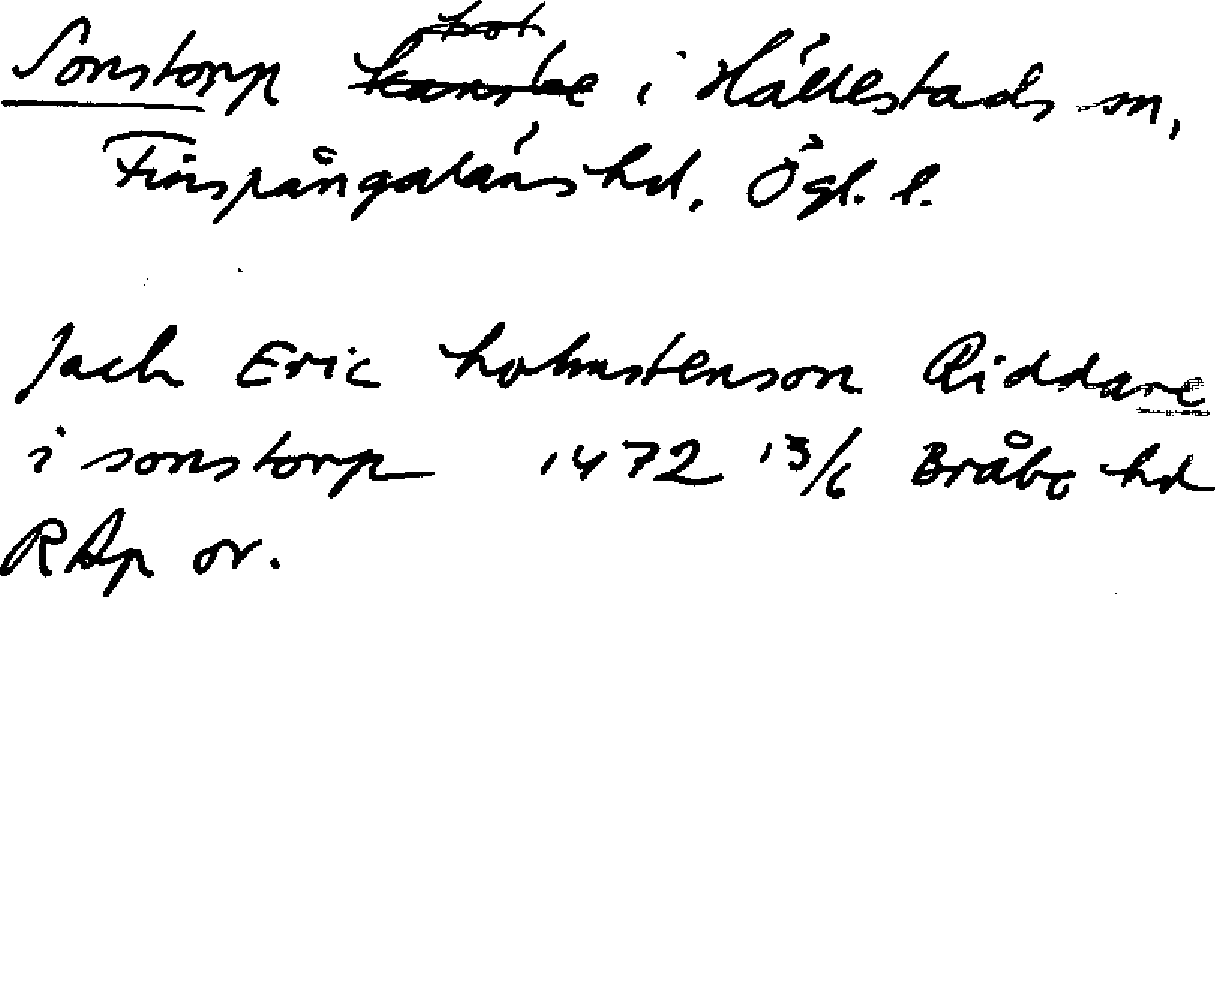 Sonstorp kanske i Hällestads sn,
Finspångaläns hd. Ögl. l.
Jach Eric holmstenson Riddare
i sonstorp 1472 13/6 Bråbo hd
RAp or.